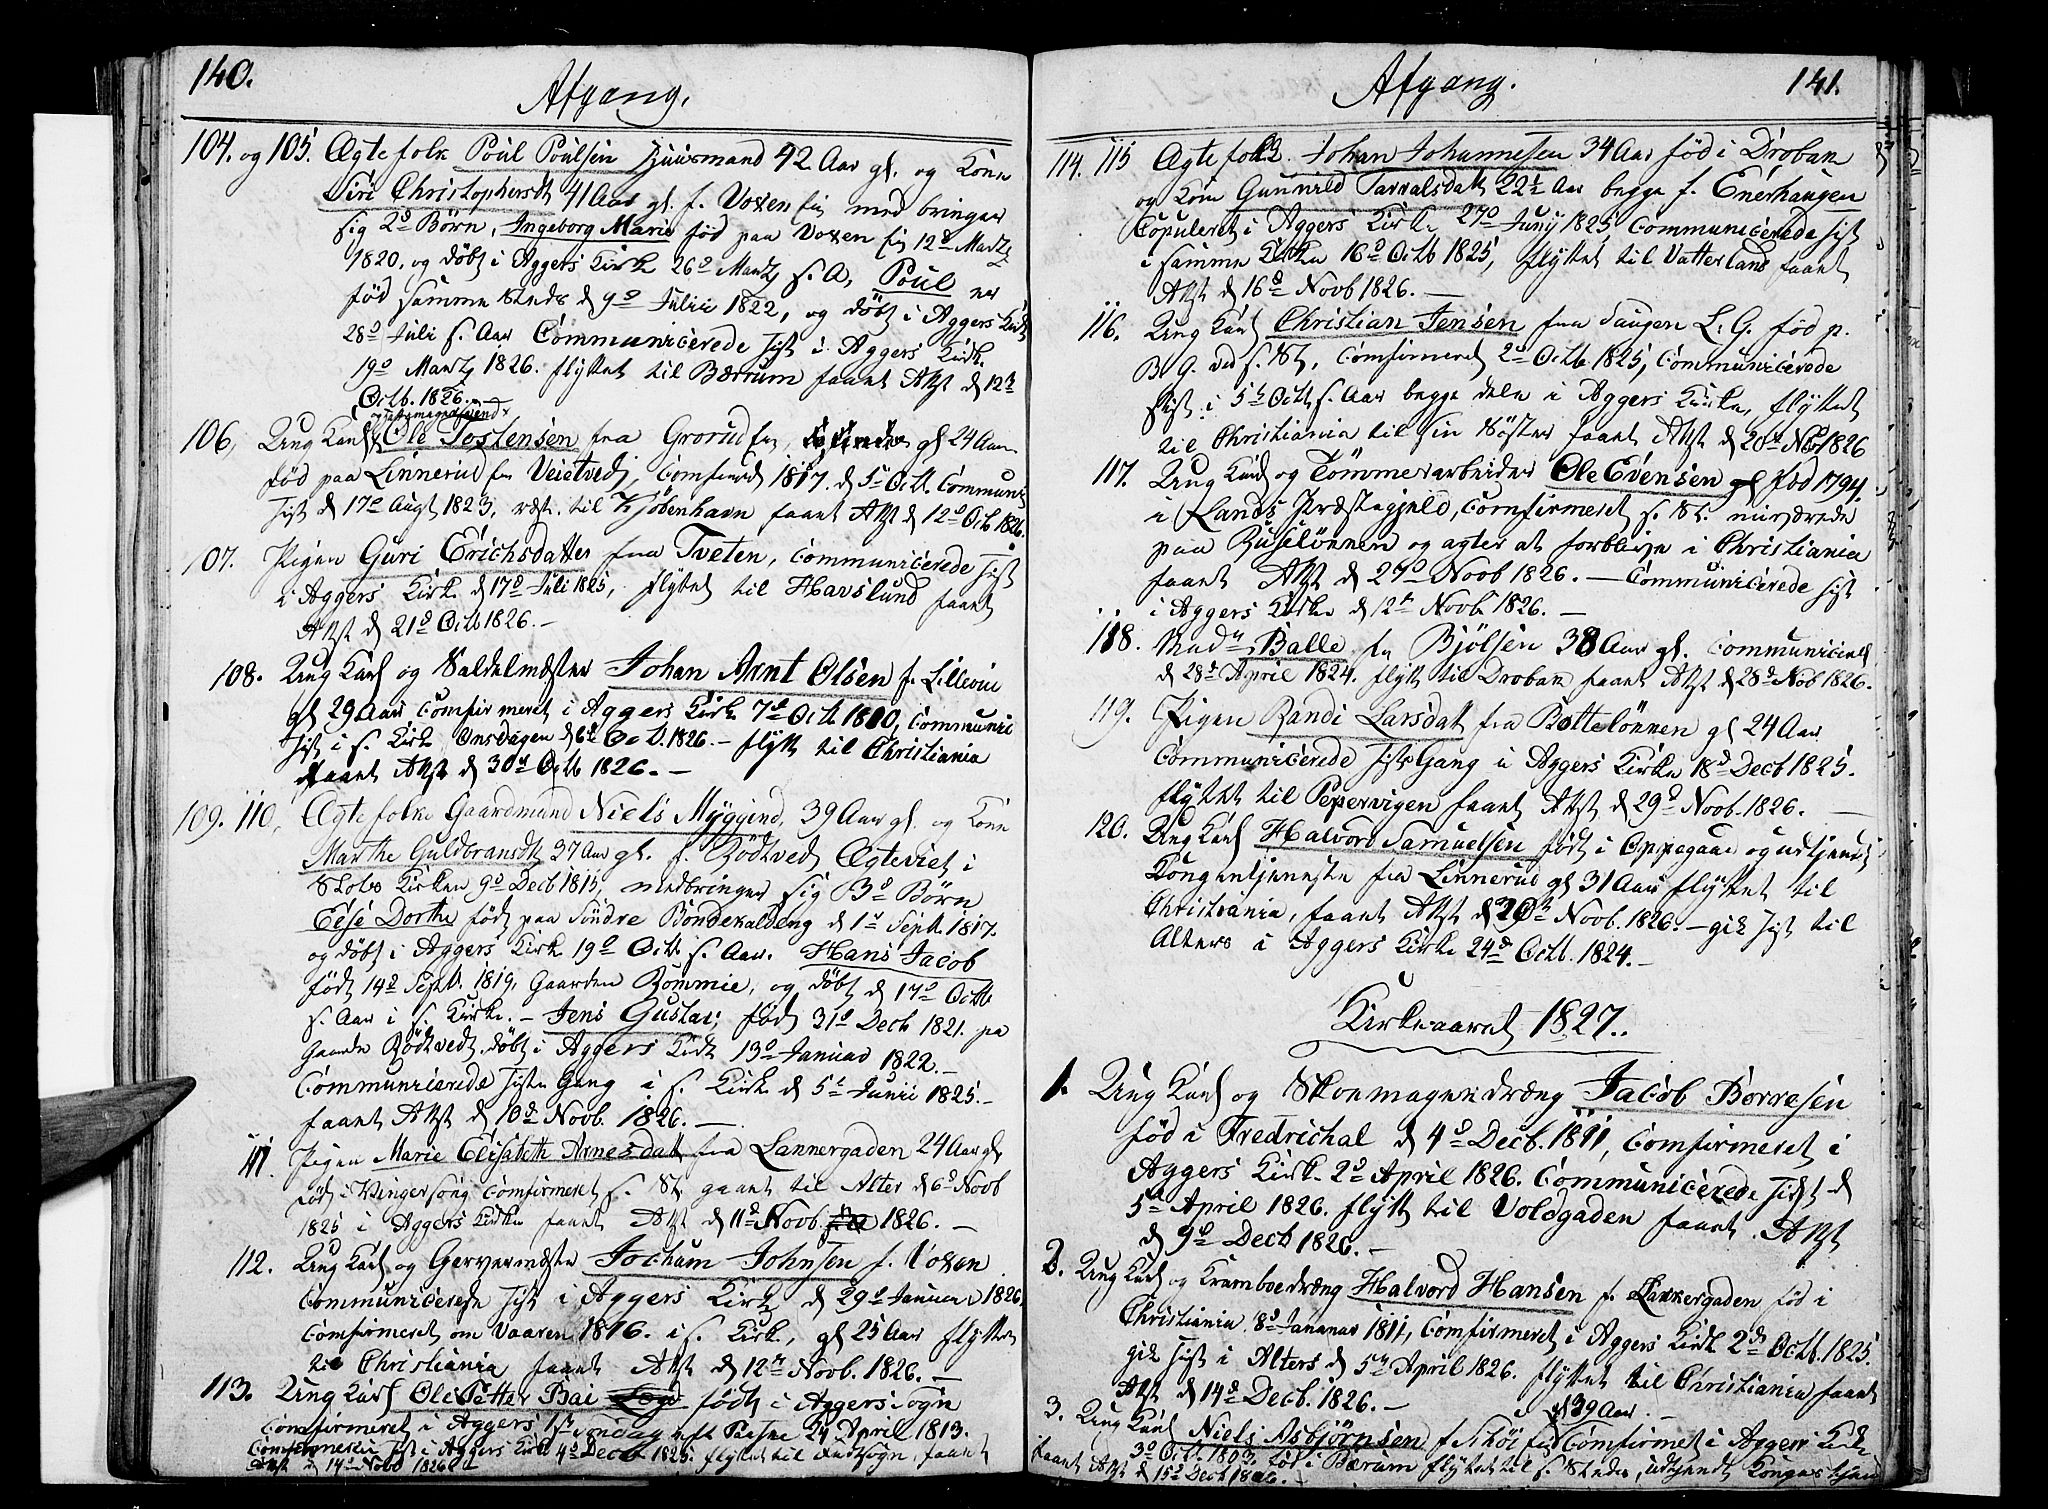 140.
Afgang.
104. og 105. Ægtefolk Poul Poulsen Huusmand 42 Aar gl. og Kone
Siri Christophersdt 41 Aar gl. f. Voxen Ei medbringer
sig 2de Børn, Ingeborg Marie fød paa Voxen Ei 12d Martz
1820. og døbt i Aggers Kirke 26d Martz s. A, Poul er
fød samme Steds d 9d Julii 1822, og døbt i Aggers Kirk
28d Juli s. Aar Communicerede sidst i Aggers Kirk
19d Martz 1826. flyttet til Bærrum faaet Attst d 12t
Octb. 1826.
106, Ung Karl Ole Tostensen fra Grorud Ei, gl 24 Aar
fød paa Linnerud Ei Veietvedt, Comfirmed 1817. d 5d Octb. Communi
sidst d 17d Augt 1823, reist til Kjöbenhavn faaet Attst d 12d Octb 1826.
107. Pigen Guri Erichsdatter fra Tveten, Communicerede sidst
i Aggers Kirke d 17d Juli 1825, flyttet til Havslund faaet
Attst d 21d Octb 1826.–
108. Ung Karl og Sadelmester Johan Arnt Olsen f. Lillevie
gl 29 Aar Comfirmeret i Aggers Kirk 7d Octb. 1810, Communi
sidst i s. Kirk Onsdagen d 6d Octb. 1826.– flytt til Christiania
faaet Attst d 30d Octb 1826.–
109. 110, Ægtefolke Gaardmand Niels Myggind, 39 Aar gl. og Kone
Marthe Guldbransdt 37 Aar gl. f. Rödtved, Ægteviet i
Slots Kirken 9d Decb 1815, medbringer sig 3d Børn
Else Dorthe født paa Söndre d 1d Septb. 1817.
og døbt i Aggers Kirk 19d Octb. s. Aar. Hans Jacob
født 14d Septb. 1819, Gaarden Rommie, og döbt d 17d Octb
s. Aar i s. Kirke.– Jens Gustav, fød 31d Decb 1821. pa
Gaarden Rödtvedt døbt i Aggers Kirk 13d Januar 1822.–
Communicerede sidste Gang i s. Kirk d 5t Junii 1825.–
faaet Attst d 10d Novb. 1826.–
111 Pigen Marie Elisabeth Arnesdatt fra Lannergaden 24 Aar gl
fød i Kongersong Comfirmeret s. St. gaaet til Alter d 6d Novb
1825 i Aggers Kirke faaet Attst d 11d Novb. 1826.–
112. Ung Karl og Garvermester Jochum Johnsen f. Voxen
Communicerede sidst i Aggers Kirk d 29d Januar 1826,
Comfirmeret om Vaaren 1816. i s. Kirk, gl 25 Aar flyttet
til Christiania faaet Attst d 12t Novb. 1826.–
113. Ung Karl Ole Petter Bai født i Aggers Sogn
Comfirmeret i Aggers 1st Søndag eft Paaske 24 April 1813.
sidst i Aggers Kirk 4d Decb 1825. flyttet til faaet
Attst d 14d Novb 1826
141.
Afgang.
114. 115 Ægtefolk Johan Johannesen 34 Aar fød i Drobak
og Kone Gunnild Tarralsdatt 22½ Aar begge f. Enerhaugen
Copuleret i Aggers Kirk 27d Juny 1825 Communicerede sidst
i samme Kirke 16d Octb 1825, flyttet til Vatterland faaet
Attst d 16d Novb 1826.–
116. Ung Karl Christian Jensen fra Haugen L. G. fød p.
B G. ved s. St, Comfirmeret 2d Octb. 1825, Communicerede
sidst i 5t Octb s. Aar begge dele i Aggers Kirke, flyttet
til Christiania til sin Söster faaet Attst d 20d Nov 1826
117. Ung Karl og Tömmerarbeider Ole Evensen fød 1794.
i Lands Præstegjeld, Comfirmeret s. St. nuværende
paa Ruselönnen og agter at forblive i Christiania
faaet Attst d 27d Novb 1826.– Communicerede sidst
i Aggers Kirke d 12t Novb. 1826.–
118. Mad. Balle fra Bjölsen 38 Aar gl. Communicered
d 28d April 1824. flytt til Drobak faaet Attst d 28d Nob 1826.
119. Pigen Randi Larsdatt fra Bottelönnen gl 24 Aar
Communicerede sidste Gang i Aggers Kirke 18d Decb 1825.
flyttet til Pepervigen faaet Attst d 29d Novb. 1826.–
120. Ung Karl Halvord Samuelsen født i Oppegaar og udtjenet
Kongentjeneste fra Linnerud gl 31 Aar flyttet til
Christiania, faaet Attst d Novb. 1826.– gik sidst til
Alters i Aggers Kirke 24d Octb. 1824.–
Kirkeaaret 1827.
1. Ung Karl og Skomagerdræng Jacob Borresen
fød i Fredrichal d 4d Decb. 1811, Comfirmeret i
Aggers Kirk 2d April 1826. Communicerede sidst d
5t April 1826. flytt til Voldgaden faaet Attst
d 9d Decb 1826.–
2. Ung Karl og Kramboedræng Halvord Hansen f. Lakkergaden fød i
Christiania 8d Januar 1811, Comfirmeret i Aggers Kirk 2d Octb. 1825.
gik sidst i Alters d 5t April 1826. flyttet til Christiania faaet
Attst d 14d Decb. 1826.–
gl 39 Aar
3. Ung Karl Niels Asbjörnsen f Schöi Ei Comfirmet i Agger Kirk
3d Octb. fød i Bærum flyttet til s. Steder, udtjendt Konges
faaet Attst d 15d Decb 1826.–